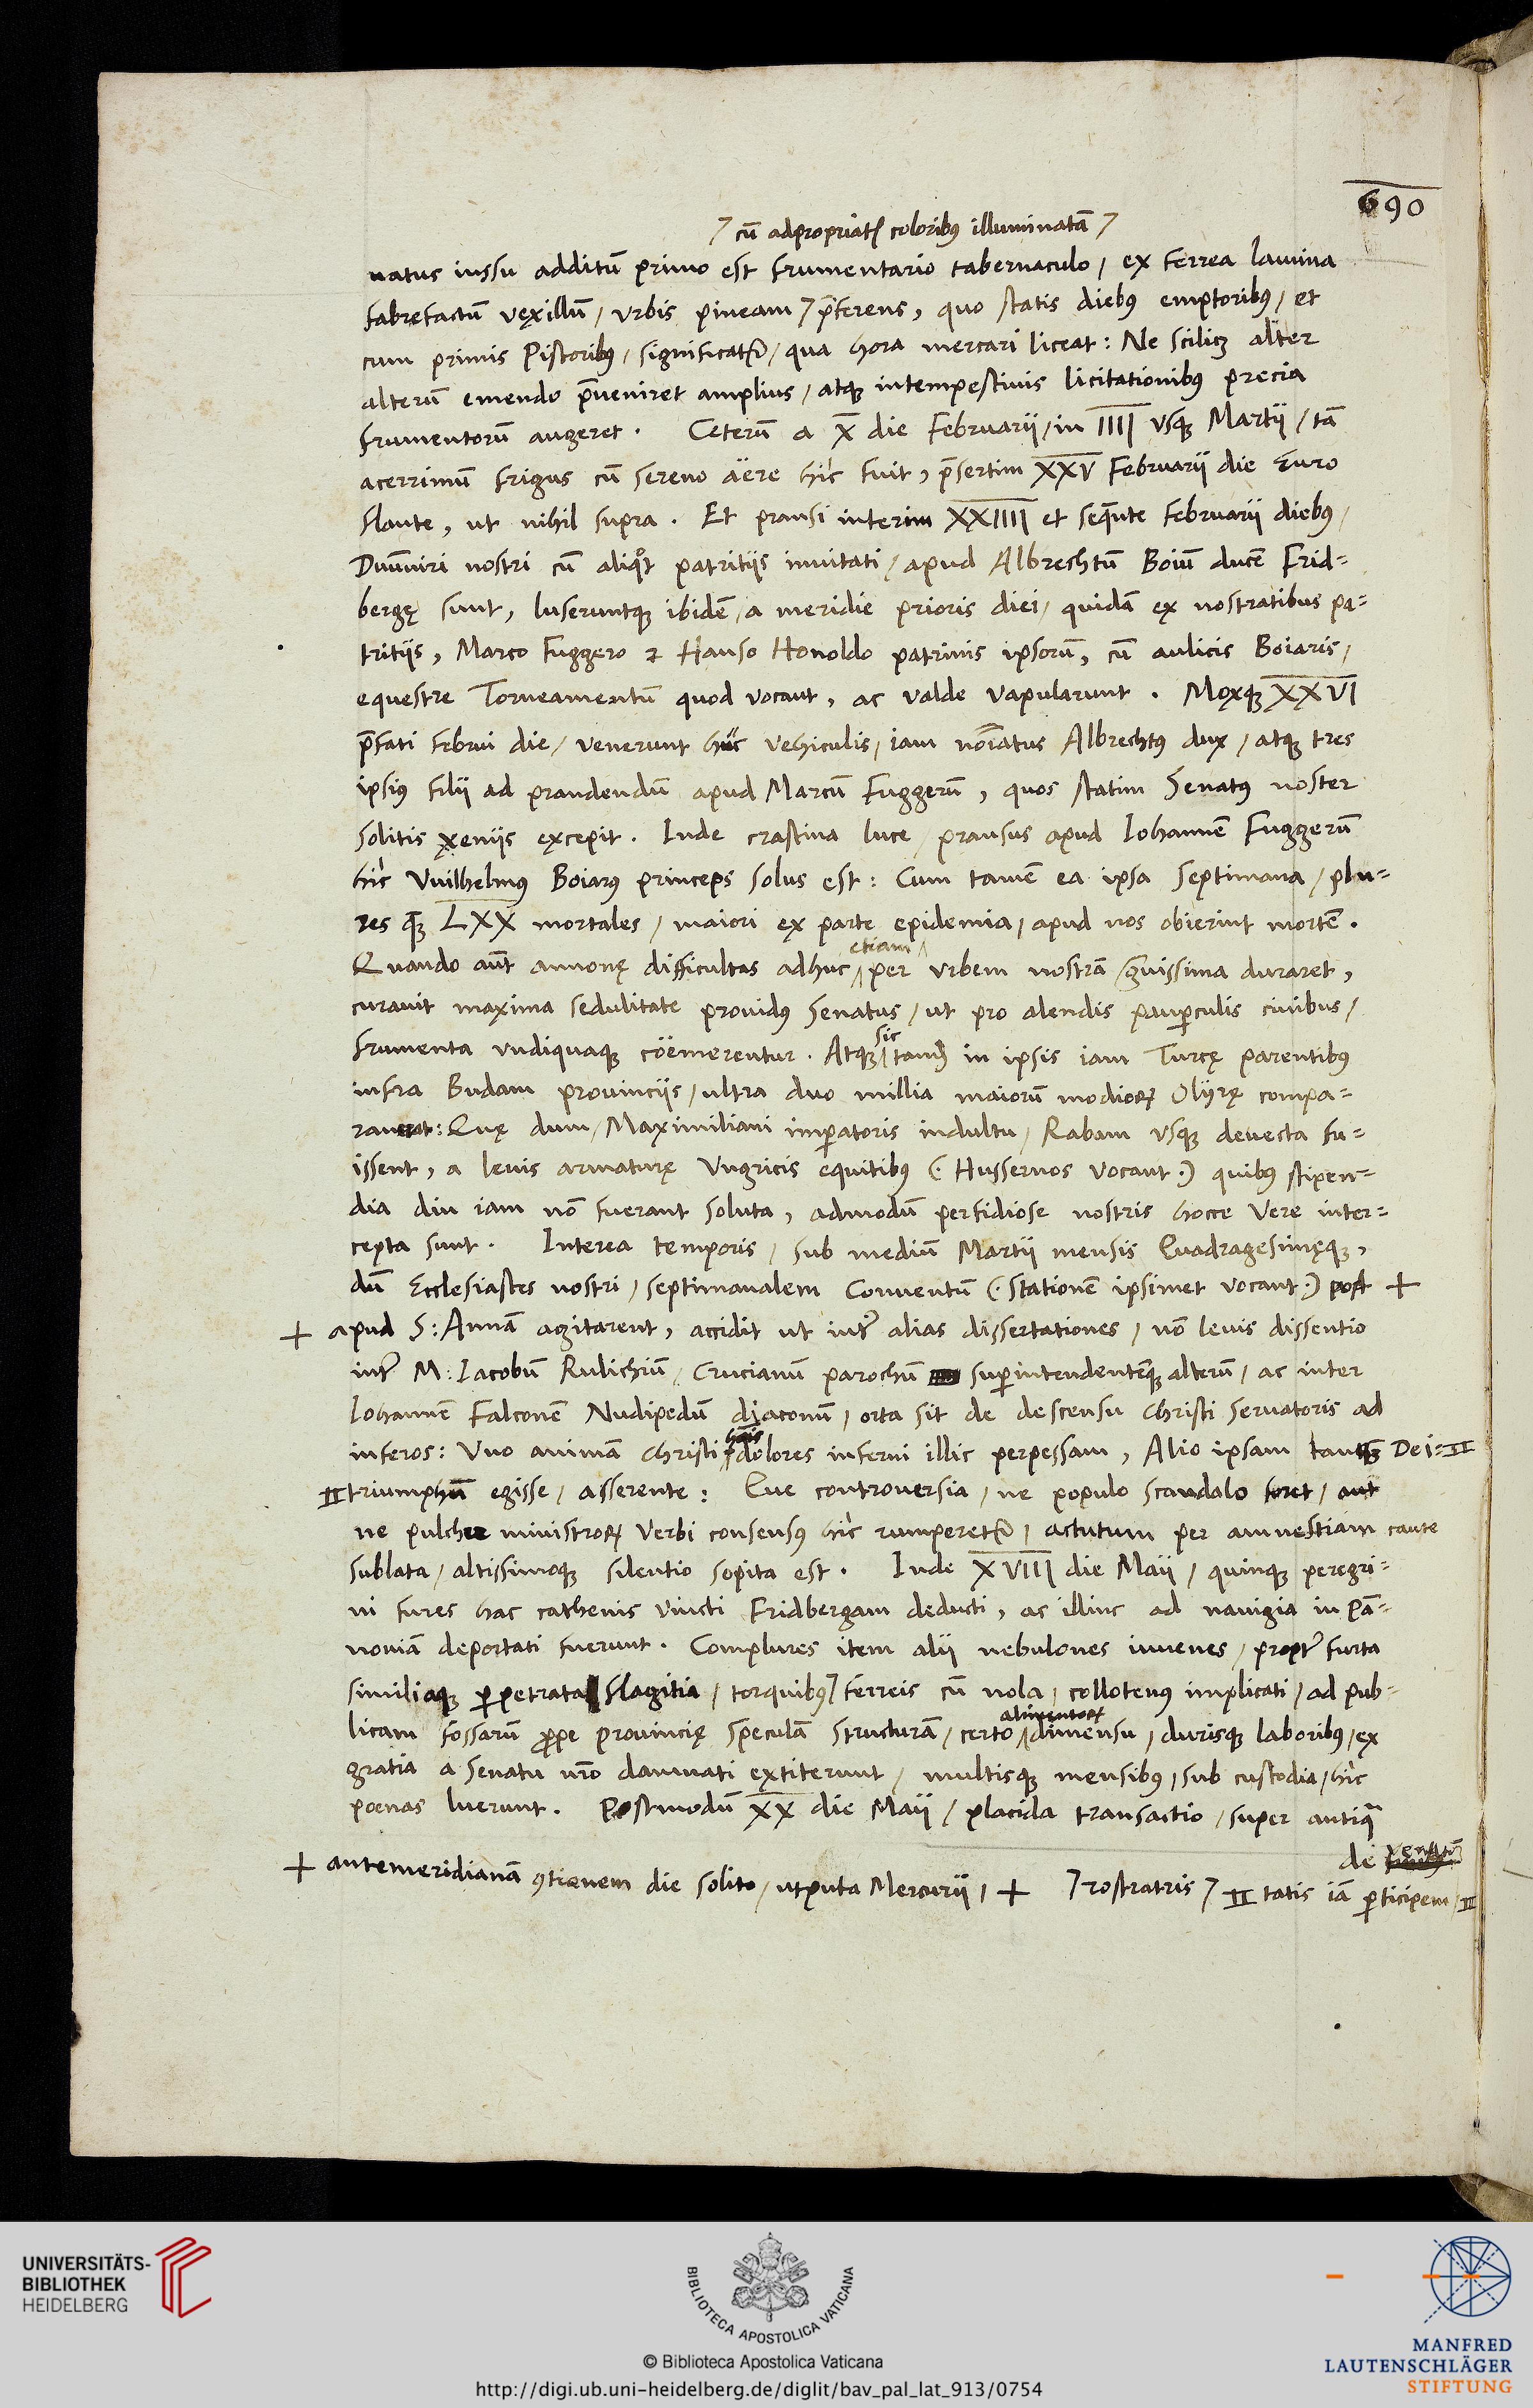 690
⁊ cū adpropriatꝭ coloribꝰ illuminatā ⁊
natus iussu additū primo est frumentario tabernaculo, ex ferrea lamina
fabrefactū vexillū, vrbis pineam ⁊ p̄ferens, quo statis diebꝰ emptoribꝰ, et
cum primis Pistoribꝰ, significatr̄, qua hora mercari liceat: Ne scilicꝫ alter
alterū emendo p̄ueniret amplius, atqꝫ intempestiuis licitationibꝰ precia
frumentorū augeret. Ceterū a X̄ die Februarii, in IIII vsqꝫ Martii, tā
acerrimū frigus cū sereno aëre hìc fuit, p̄sertim XXV Februarii die Euro
flante, ut nihil supra. Et pransi interim XXIIII et seqūente Februarii diebꝰ,
Duūmuiri nostri cū aliqͦt patritiis inuitati, apud Albrechtū Boiū ducē Frid-
bergę sunt, luseruntqꝫ ibidē, a meridie prioris diei, quidā ex nostratibus pa-
tritiis, Marco Fuggero ⁊ Hanso Honoldo patrinis ipsorū, cū aulicis Boiaris,
equestre Torneamentū quod vocant, ac valde vapularunt. Moxqꝫ XXVI
p̄fati Febrūi die, venerunt huc vehiculis, iam nōīatus Albrechtꝰ dux, atqꝫ tres
ipsiꝰ filii ad prandendū apud Marcū Fuggerū, quos statim Senatꝰ noster
solitis xeniis excepit. Inde crastina luce, pransus apud Iohannē Fuggerū
hìc Vuilhelmꝰ Boiarꝰ princeps solus est: Cum tamē ea ipsa septimana, plu-
res q̄ꝫ LXX mortales, maiori ex parte epidemia, apud nos obierint mortē.
etiam
Quando aūt annonę difficultas adhuc per vrbem nostrā g̃uissima duraret,
curauit maxima sedulitate prouidꝰ Senatus, ut pro alendis paup̱culis ciuibus,
sic
frumenta vndiquaqꝫ cöemerentur. Atqꝫ tandē in ipsis iam Turcę parentibꝰ
infra Budam prouinciis, ultra duo millia maiorū modioꝝ Olyrę compa-
rauerat: Quę dum, Maximiliani imp̱atoris indultu, Rabam vsqꝫ deuecta fu-
issent, a leuis armaturę Vngricis equitibꝰ (. Hussernos vocant .) quibꝰ stipen-
dia diu iam nō fuerant soluta, admodū perfidiose nostris hocce Vere inter-
cepta sunt. Interea temporis, sub mediū Martii mensis Quadragesimęqꝫ,
dū Ecclesiastes nostri, septimanalem Conuentū (. stationē ipsimet vocant .) post +
+ apud S: Annā agitarent, accidit ut intr̄ alias dissertationes, nō leuis dissentio
intr̄ M: Iacobū Rulichiū, Crucianū parochū sup̱intendentēqꝫ alterū, ac inter
Iohannē Falconē Nudipedū diaconū, orta sit de descensu Christi seruatoris ad
inferos: Vno animā Christi dolores inferni illic perpessam, Alio ipsam tanqꝫ Dei= II
II triumphū egisse, asserente: Que controuersia, ne populo scandalo foret, aut
ne pulchre ministroꝝ verbi consensꝰ hìc rumperetr̄, actutum per amnestiam caute
sublata, altissimoqꝫ silentio sopita est. Inde XVIII die Maii, quinqꝫ peregri-
ni fures hac cathenis vincti Fridbergam deducti, ac illinc ad nauigia in Pā-
noniā deportati fuerunt. Complures item alii nebulones iuuenes, proptr̄ furta
similiaqꝫ p̱petrata flagitia, torquibꝰ ⁊ ferreis cū nola, collotenꝰ implicati, ad pub-
alimentoꝝ
licam fossarū ꝓpe prouincię speculā structurā, certo dimensu, durisqꝫ laboribꝰ, ex
gratia a Senatu nr̄o damnati extiterunt, multisqꝫ mensibꝰ, sub custodia, hìc
poenas luerunt. Postmodū XX die Maii, placida transactio, super antiqua
de
+ antemeridianā ꝯtionem die solito, utputa Mercurii, + ⁊ rostratris ⁊ II tatis iā p̱ticipem, II
UNIVERSITÄTS-
BIBLIOTHEK
HEIDELBERG
BIBLIOTECA APOSTOLICA VATICANA
© Biblioteca Apostolica Vaticana
http://digi.ub.uni-heidelberg.de/diglit/bav_pal_lat_913/0754
MANFRED
LAUTENSCHLÄGER
STIFTUNG